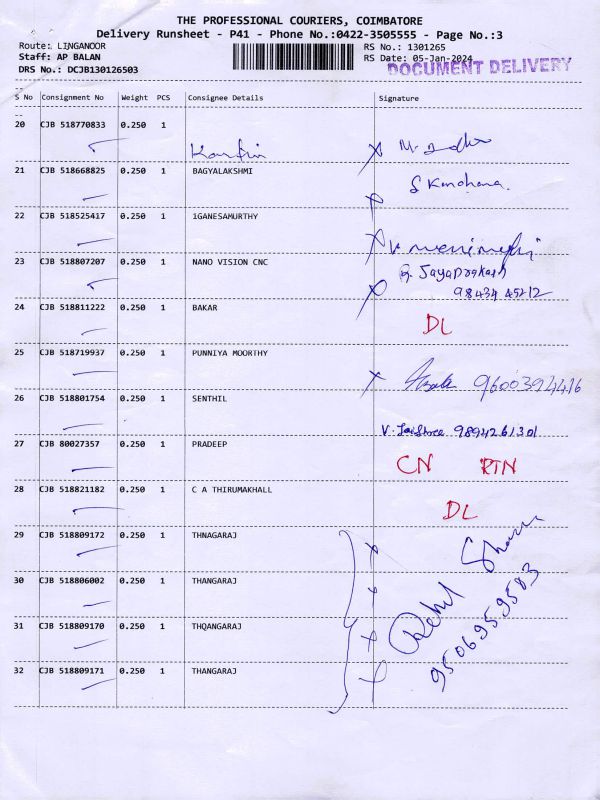 THE PROFESSIONAL COURIERS, COIMBATORE
Delivery Runsheet - P41 - Phone No.:0422-3505555 - Page No.:3
Route: LINGANOOR RS No.: 1301265
Staff: AP BALAN RS Date: 05-Jan-2024
DRS No.: DCJB130126503 DOCUMENT DELIVERY
S No Consignment No Weight PCS Consignee Details Signature
20 CJB 518770833 0.250 1
21 CJB 518668825 0.250 1 BAGYALAKSHMI
S Kanchana.
22 CJB 518525417 0.250 1 1GANESAMURTHY
23 CJB 518807207 0.250 1 NANO VISION CNC
Jayaprakash
98434 45212
24 CJB 518811222 0.250 1 BAKAR
DL
25 CJB 518719937 0.250 1 PUNNIYA MOORTHY
9600394416
26 CJB 518801754 0.250 1 SENTHIL
V. Jaishree 9894261301
27 CJB 80027357 0.250 1 PRADEEP
CN RTN
28 CJB 518821182 0.250 1 C A THIRUMAKHALL
DL
29 CJB 518809172 0.250 1 THNAGARAJ
30 CJB 518806002 0.250 1 THANGARAJ
31 CJB 518809170 0.250 1 THQANGARAJ
9506959503
32 CJB 518809171 0.250 1 THANGARAJ